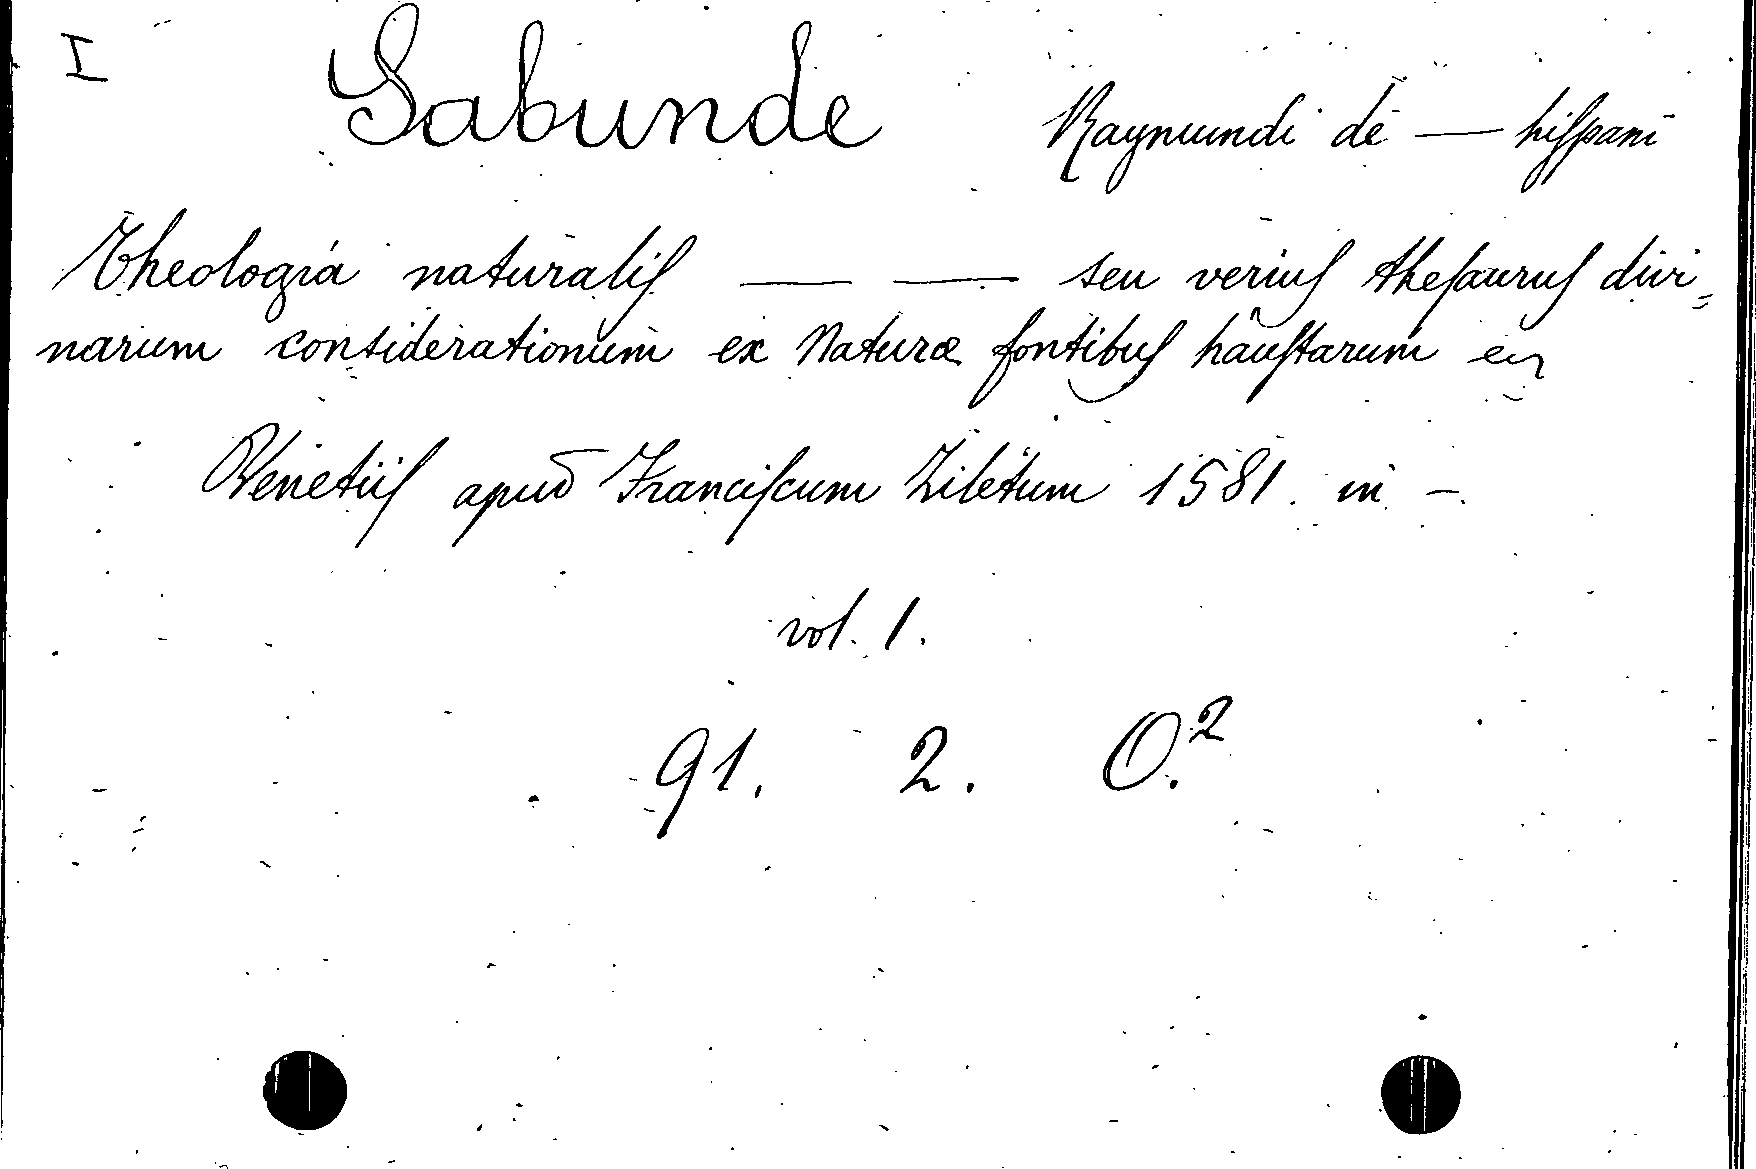 I Sabunde Raymundi de — hiſpani
Theologia naturaliſ — — seu veriuſ theſauruſ divi=
narum considerationum ex Naturæ fontibuſ hauſtarum
Venetiiſ apud Franciſcum Ziletum 1581. in —.
vol. 1.
91. 2. O.²